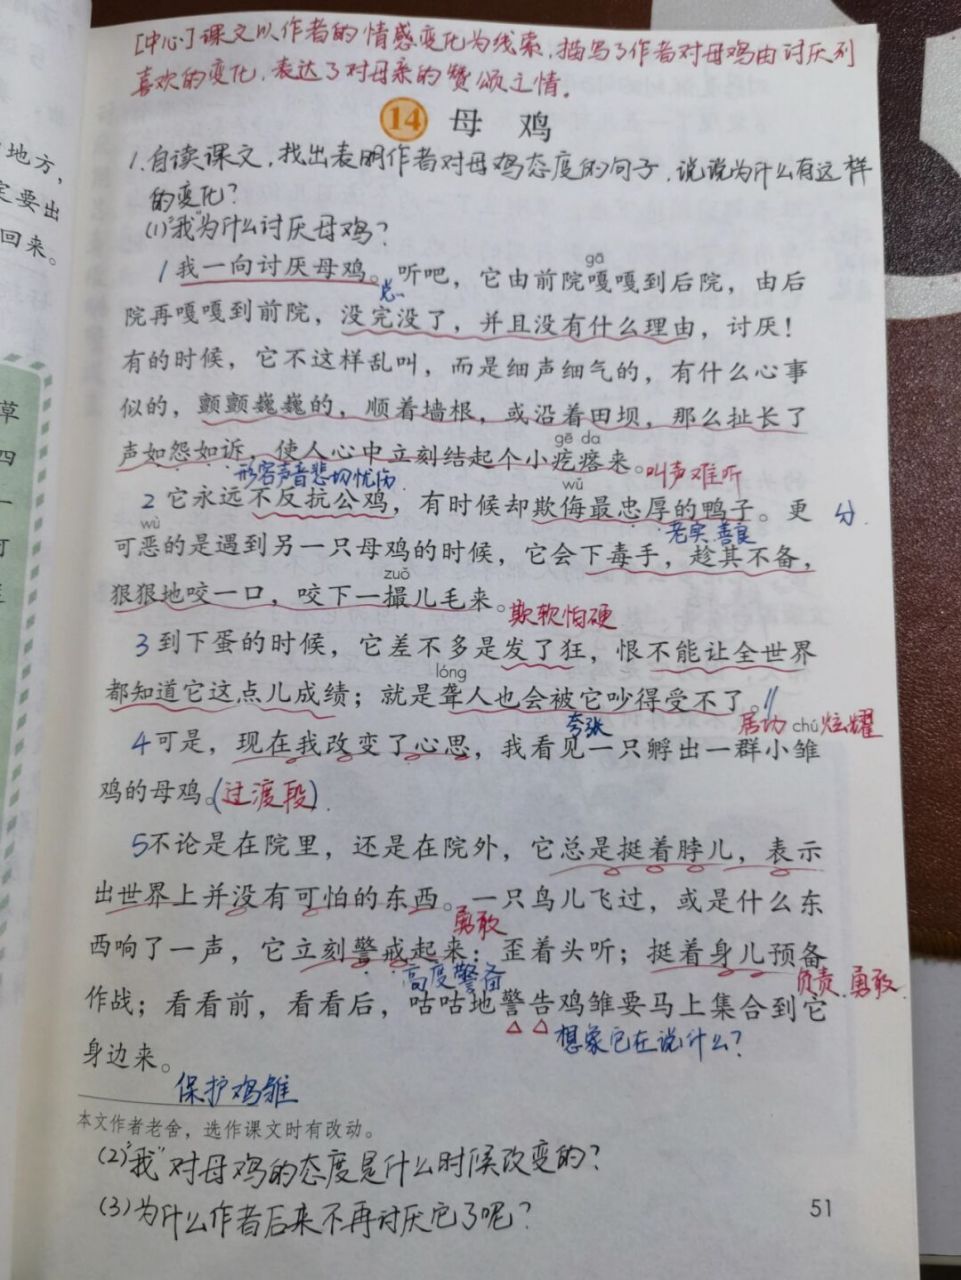 [中心]课文以作者的情感变化为线索，描写了作者对母鸡由讨厌到
喜欢的变化，表达了对母亲的赞颂之情。
14 母 鸡
1.自读课文，找出表明作者对母鸡态度的句子，说说为什么有这样
的变化？
(1)“我”为什么讨厌母鸡？
gā
1 我一向讨厌母鸡。听吧，它由前院嘎嘎到后院，由后
总
院再嘎嘎到前院，没完没了，并且没有什么理由，讨厌！
有的时候，它不这样乱叫，而是细声细气的，有什么心事
似的，颤颤巍巍的，顺着墙根，或沿着田坝，那么扯长了
gē da
声如怨如诉，使人心中立刻结起个小疙瘩来。叫声难听
形容声音悲切忧伤
wǔ
2 它永远不反抗公鸡，有时候却欺侮最忠厚的鸭子。更 分
老实善良
wù
可恶的是遇到另一只母鸡的时候，它会下毒手，趁其不备，
zuǒ
狠狠地咬一口，咬下一撮儿毛来。欺软怕硬
3 到下蛋的时候，它差不多是发了狂，恨不能让全世界
lóng
都知道它这点儿成绩；就是聋人也会被它吵得受不了。//
夸张 居功 炫耀
chú
4 可是，现在我改变了心思，我看见一只孵出一群小雏
鸡的母鸡。(过渡段)
5 不论是在院里，还是在院外，它总是挺着脖儿，表示
出世界上并没有可怕的东西。一只鸟儿飞过，或是什么东
勇敢
西响了一声，它立刻警戒起来：歪着头听；挺着身儿预备
高度警备 负责、勇敢
作战；看看前，看看后，咕咕地警告鸡雏要马上集合到它
想象它在说什么？
身边来。
保护鸡雏
本文作者老舍，选作课文时有改动。
(2)“我”对母鸡的态度是什么时候改变的？
(3)为什么作者后来不再讨厌它了呢？
51
地方，
定要出
回来。
草
四
一